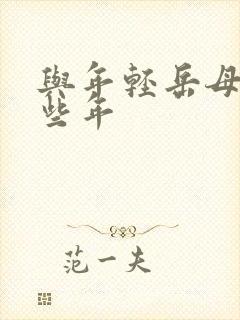 與年輕岳母
些年
范一夫